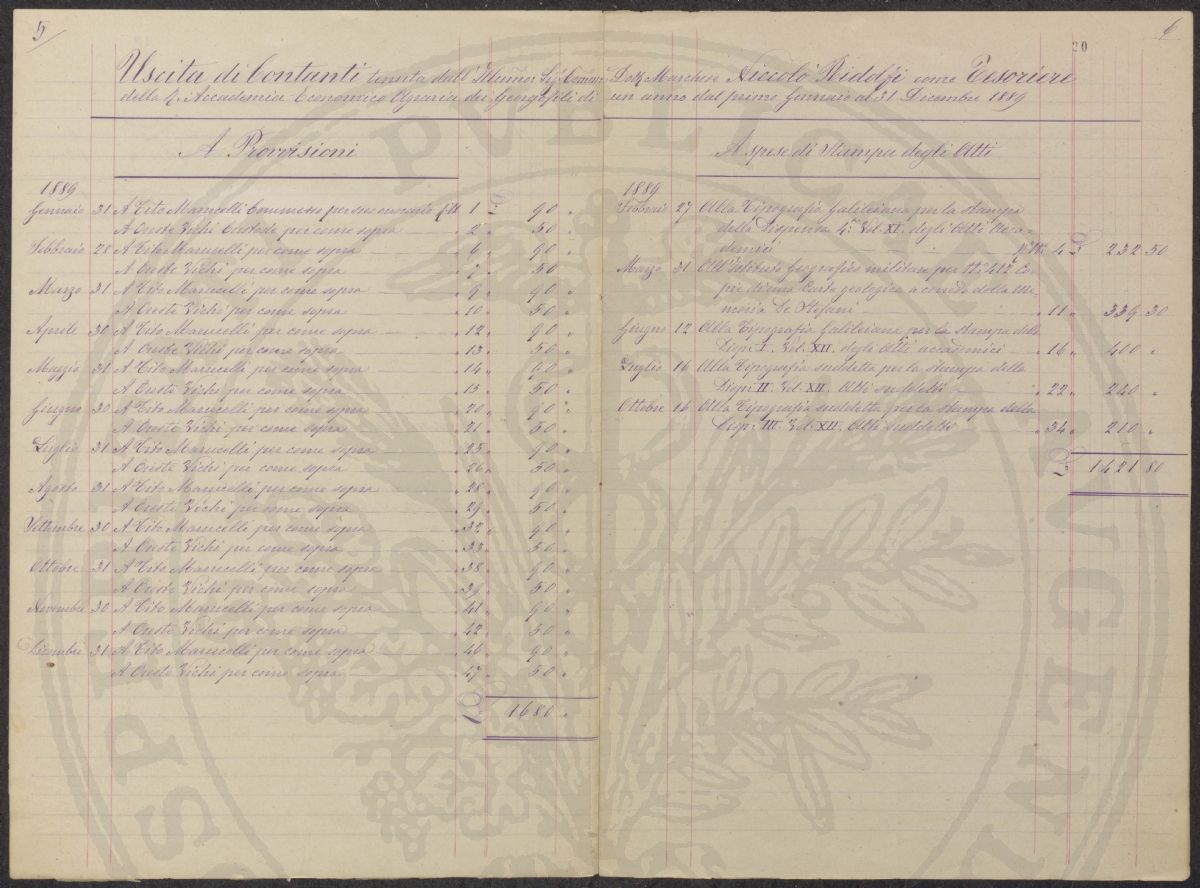 5
Uscita di Contanti tenuta dall'Illmo Sig.
della R. Accademia Economico Agraria dei Georgofili di
A Provvisioni
1889
Gennaio 31 A Tito Marucelli Commesso per suo onorario 1 £ 90 "
A Oreste Vichi Custode per come sopra 2 50 "
Febbraio 28 A Tito Marucelli per come sopra " 6 " 90 "
A Oreste Vichi per come sopra " 7 " 50 "
Marzo 31 A Tito Marucelli per come sopra " 9 " 90 "
A Oreste Vichi per come sopra " 10 " 50 "
Aprile 30 A Tito Marucelli per come sopra " 12 " 90 "
A Oreste Vichi per come sopra " 13 " 50 "
Maggio 31 A Tito Marucelli per come sopra " 14 " 90 "
A Oreste Vichi per come sopra " 15 " 50 "
Giugno 30 A Tito Marucelli per come sopra " 20 " 90 "
A Oreste Vichi per come sopra " 21 " 50 "
Luglio 31 A Tito Marucelli per come sopra " 25 " 90 "
A Oreste Vichi per come sopra " 26 " 50 "
Agosto 31 A Tito Marucelli per come sopra " 28 " 90 "
A Oreste Vichi per come sopra " 29 " 50 "
Settembre 30 A Tito Marucelli per come sopra " 32 " 90 "
A Oreste Vichi per come sopra " 33 " 50 "
Ottobre 31 A Tito Marucelli per come sopra " 38 " 90 "
A Oreste Vichi per come sopra " 39 " 50 "
Novembre 30 A Tito Marucelli per come sopra " 41 " 90 "
A Oreste Vichi per come sopra " 42 " 50 "
Dicembre 31 A Tito Marucelli per come sopra " 46 " 90 "
A Oreste Vichi per come sopra " 47 " 50 "
£ 1680 "
20
Marchese Niccolò Ridolfi come Tesoriere
un anno dal primo Gennaio al 31 Dicembre 1889
A spese di Stampa degli Atti
1889
Febbraio 27 Alla Tipografia Galileiana per la stampa
della Dispensa 4ª Vol. XI. degli Atti Acca-
demici 4 £ 232 50
Marzo 31 All'Istituto Geografico militare per N. 412 Co-
pie di una Carta geologica a corredo della Me-
moria De Stefani " 11 " 339 30
Giugno 12 Alla Tipografia Galileiana per la stampa della
Disp. I. Vol. XII. degli Atti accademici " 16 " 400 "
Luglio 16 Alla Tipografia suddetta per la stampa della
Disp. II Vol. XII. Atti suddetti " 22 " 240 "
Ottobre 16 Alla Tipografia suddetta per la stampa della
Disp. III Vol. XII. Atti suddetti " 34 " 210 "
£ 1421 80
PVBLICAE